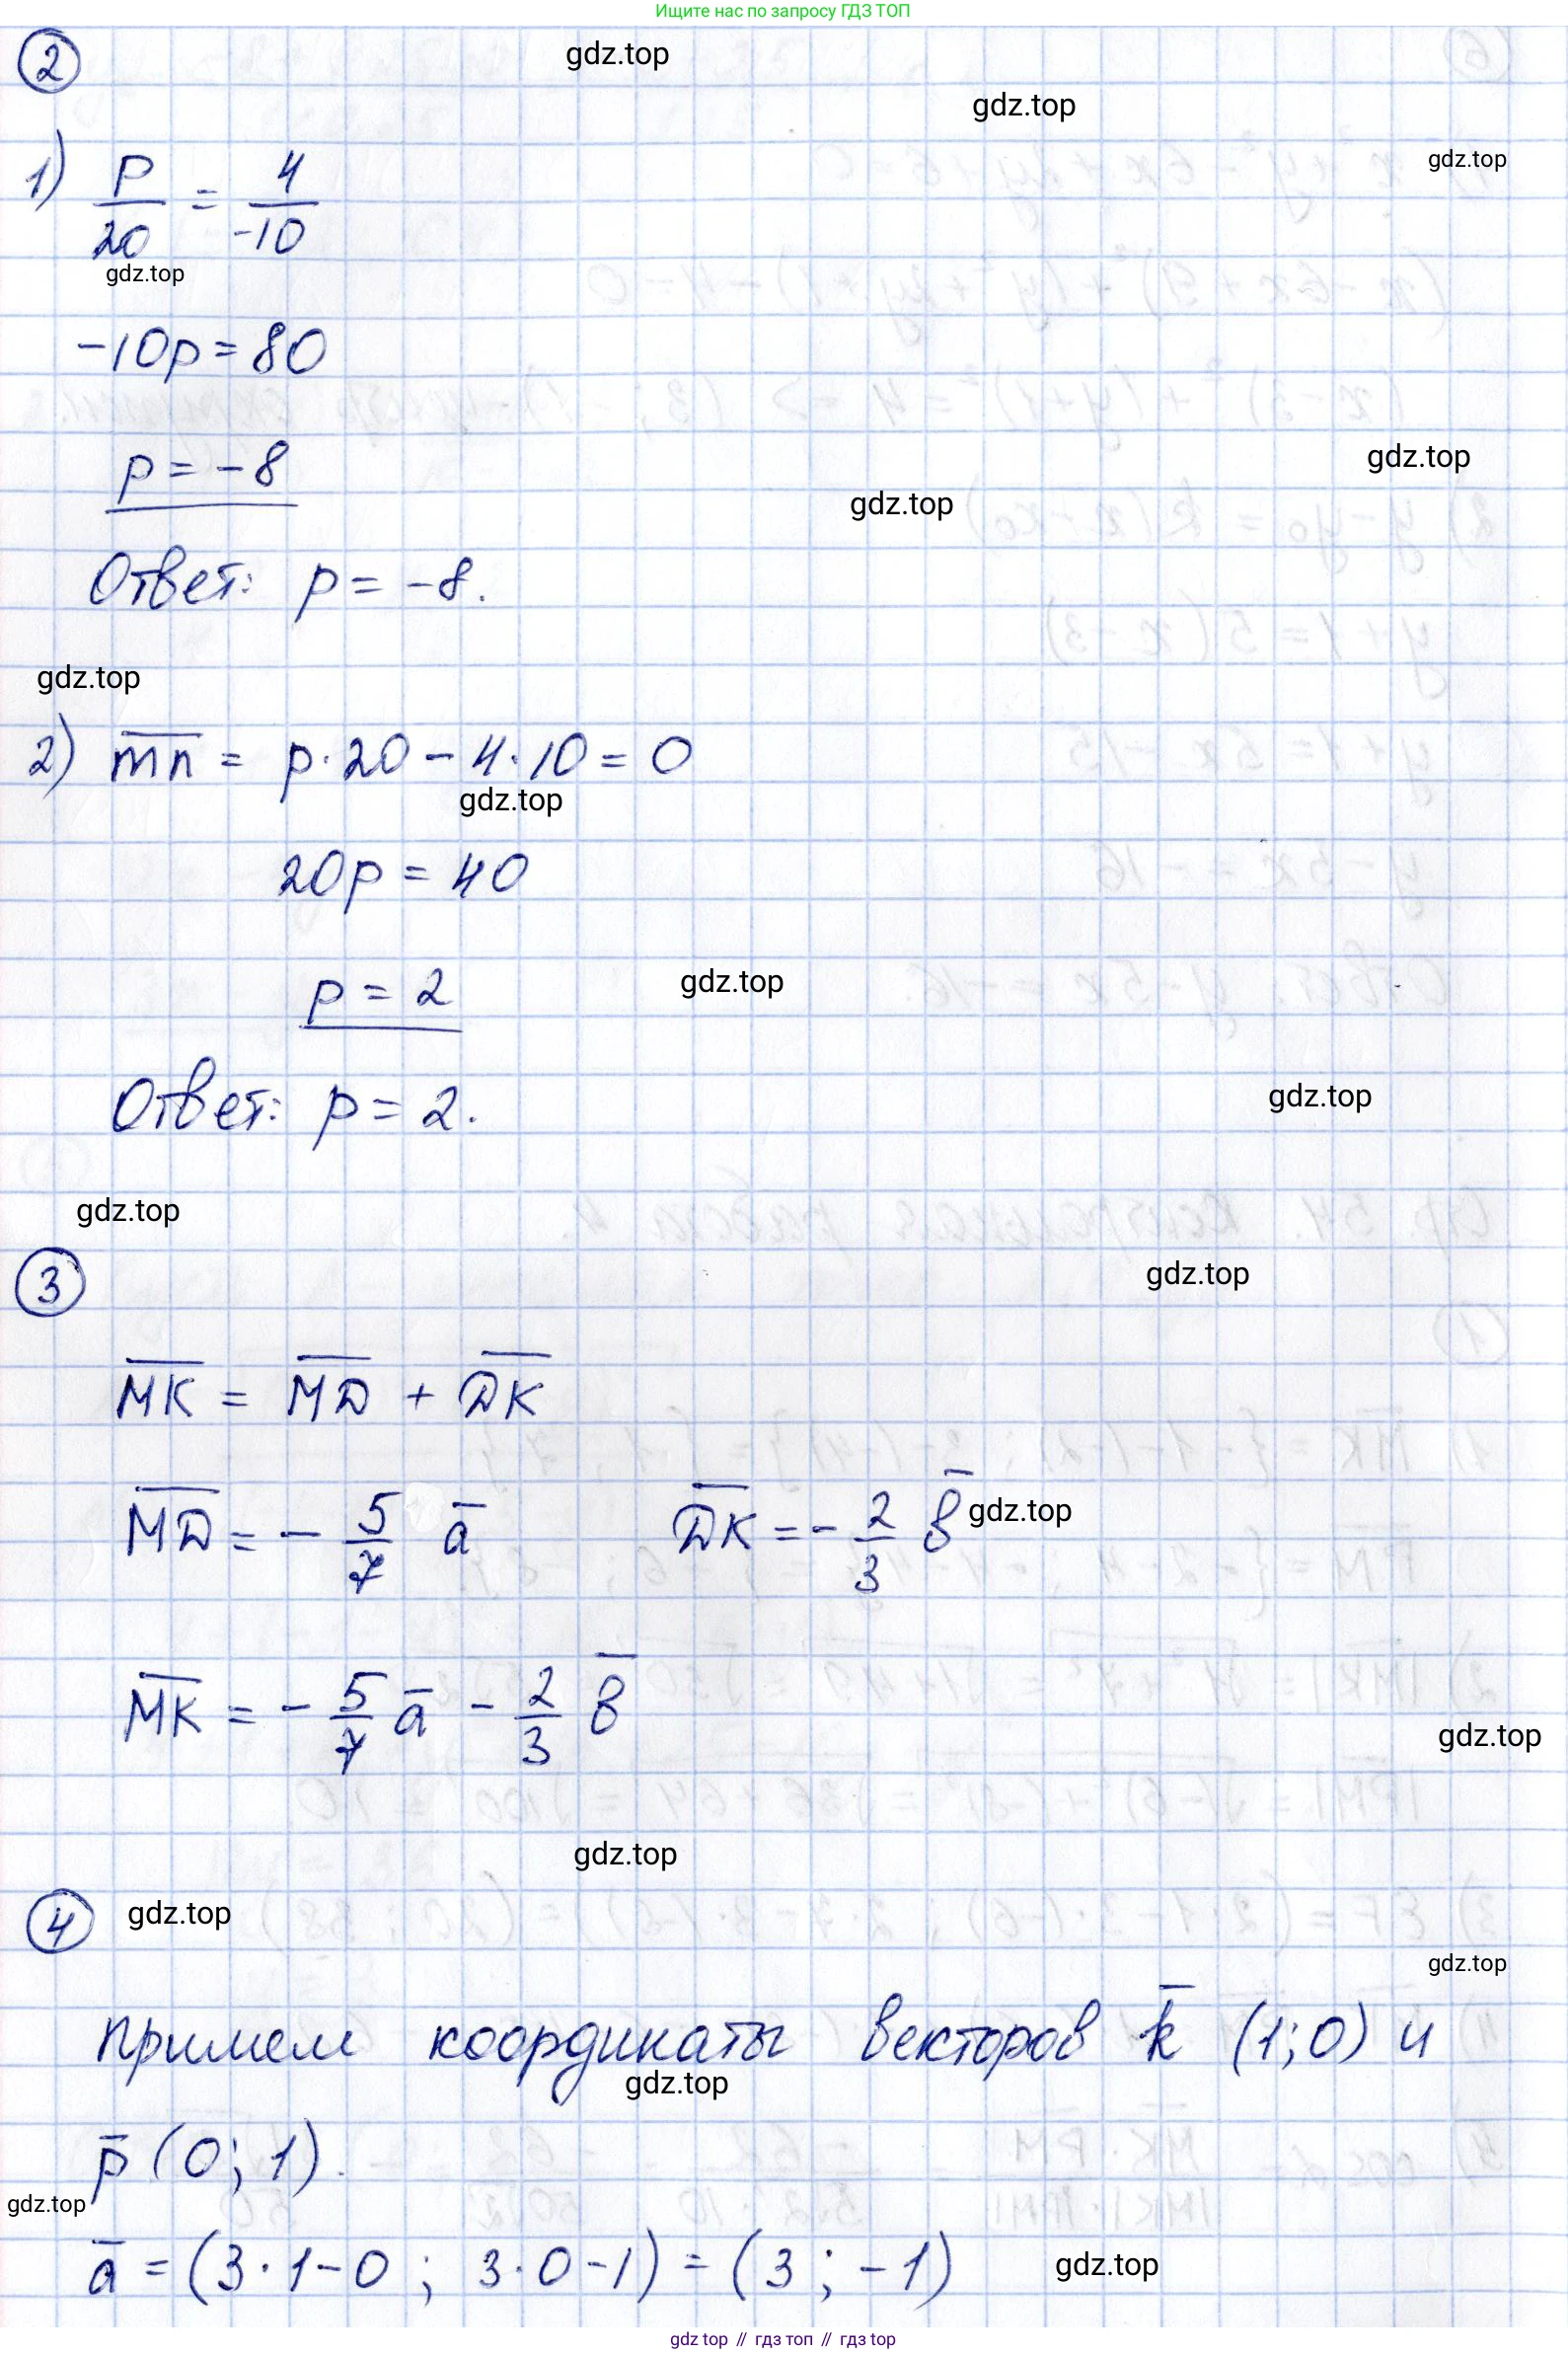 Ищите нас по запросу ГДЗ ТОП
2
gdz.top
gdz.top
gdz.top
1) p/20 = 4/-10
gdz.top
-10p = 80
p = -8
gdz.top
gdz.top
Ответ: p = -8.
gdz.top
2) m̅n̅ = p·20 - 4·10 = 0
gdz.top
20p = 40
p = 2
gdz.top
Ответ: p = 2.
gdz.top
gdz.top
3
gdz.top
M̅K̅ = M̅D̅ + D̅K̅
M̅D̅ = - 5/7 a̅ D̅K̅ = - 2/3 b̅
gdz.top
M̅K̅ = - 5/7 a̅ - 2/3 b̅
gdz.top
gdz.top
4
gdz.top
gdz.top
Примем координаты векторов k̅ (1;0) и
gdz.top
p̅ (0; 1).
gdz.top
a̅ = (3·1-0 ; 3·0-1) = (3 ; -1)
gdz.top
gdz top // гдз топ // гдз top